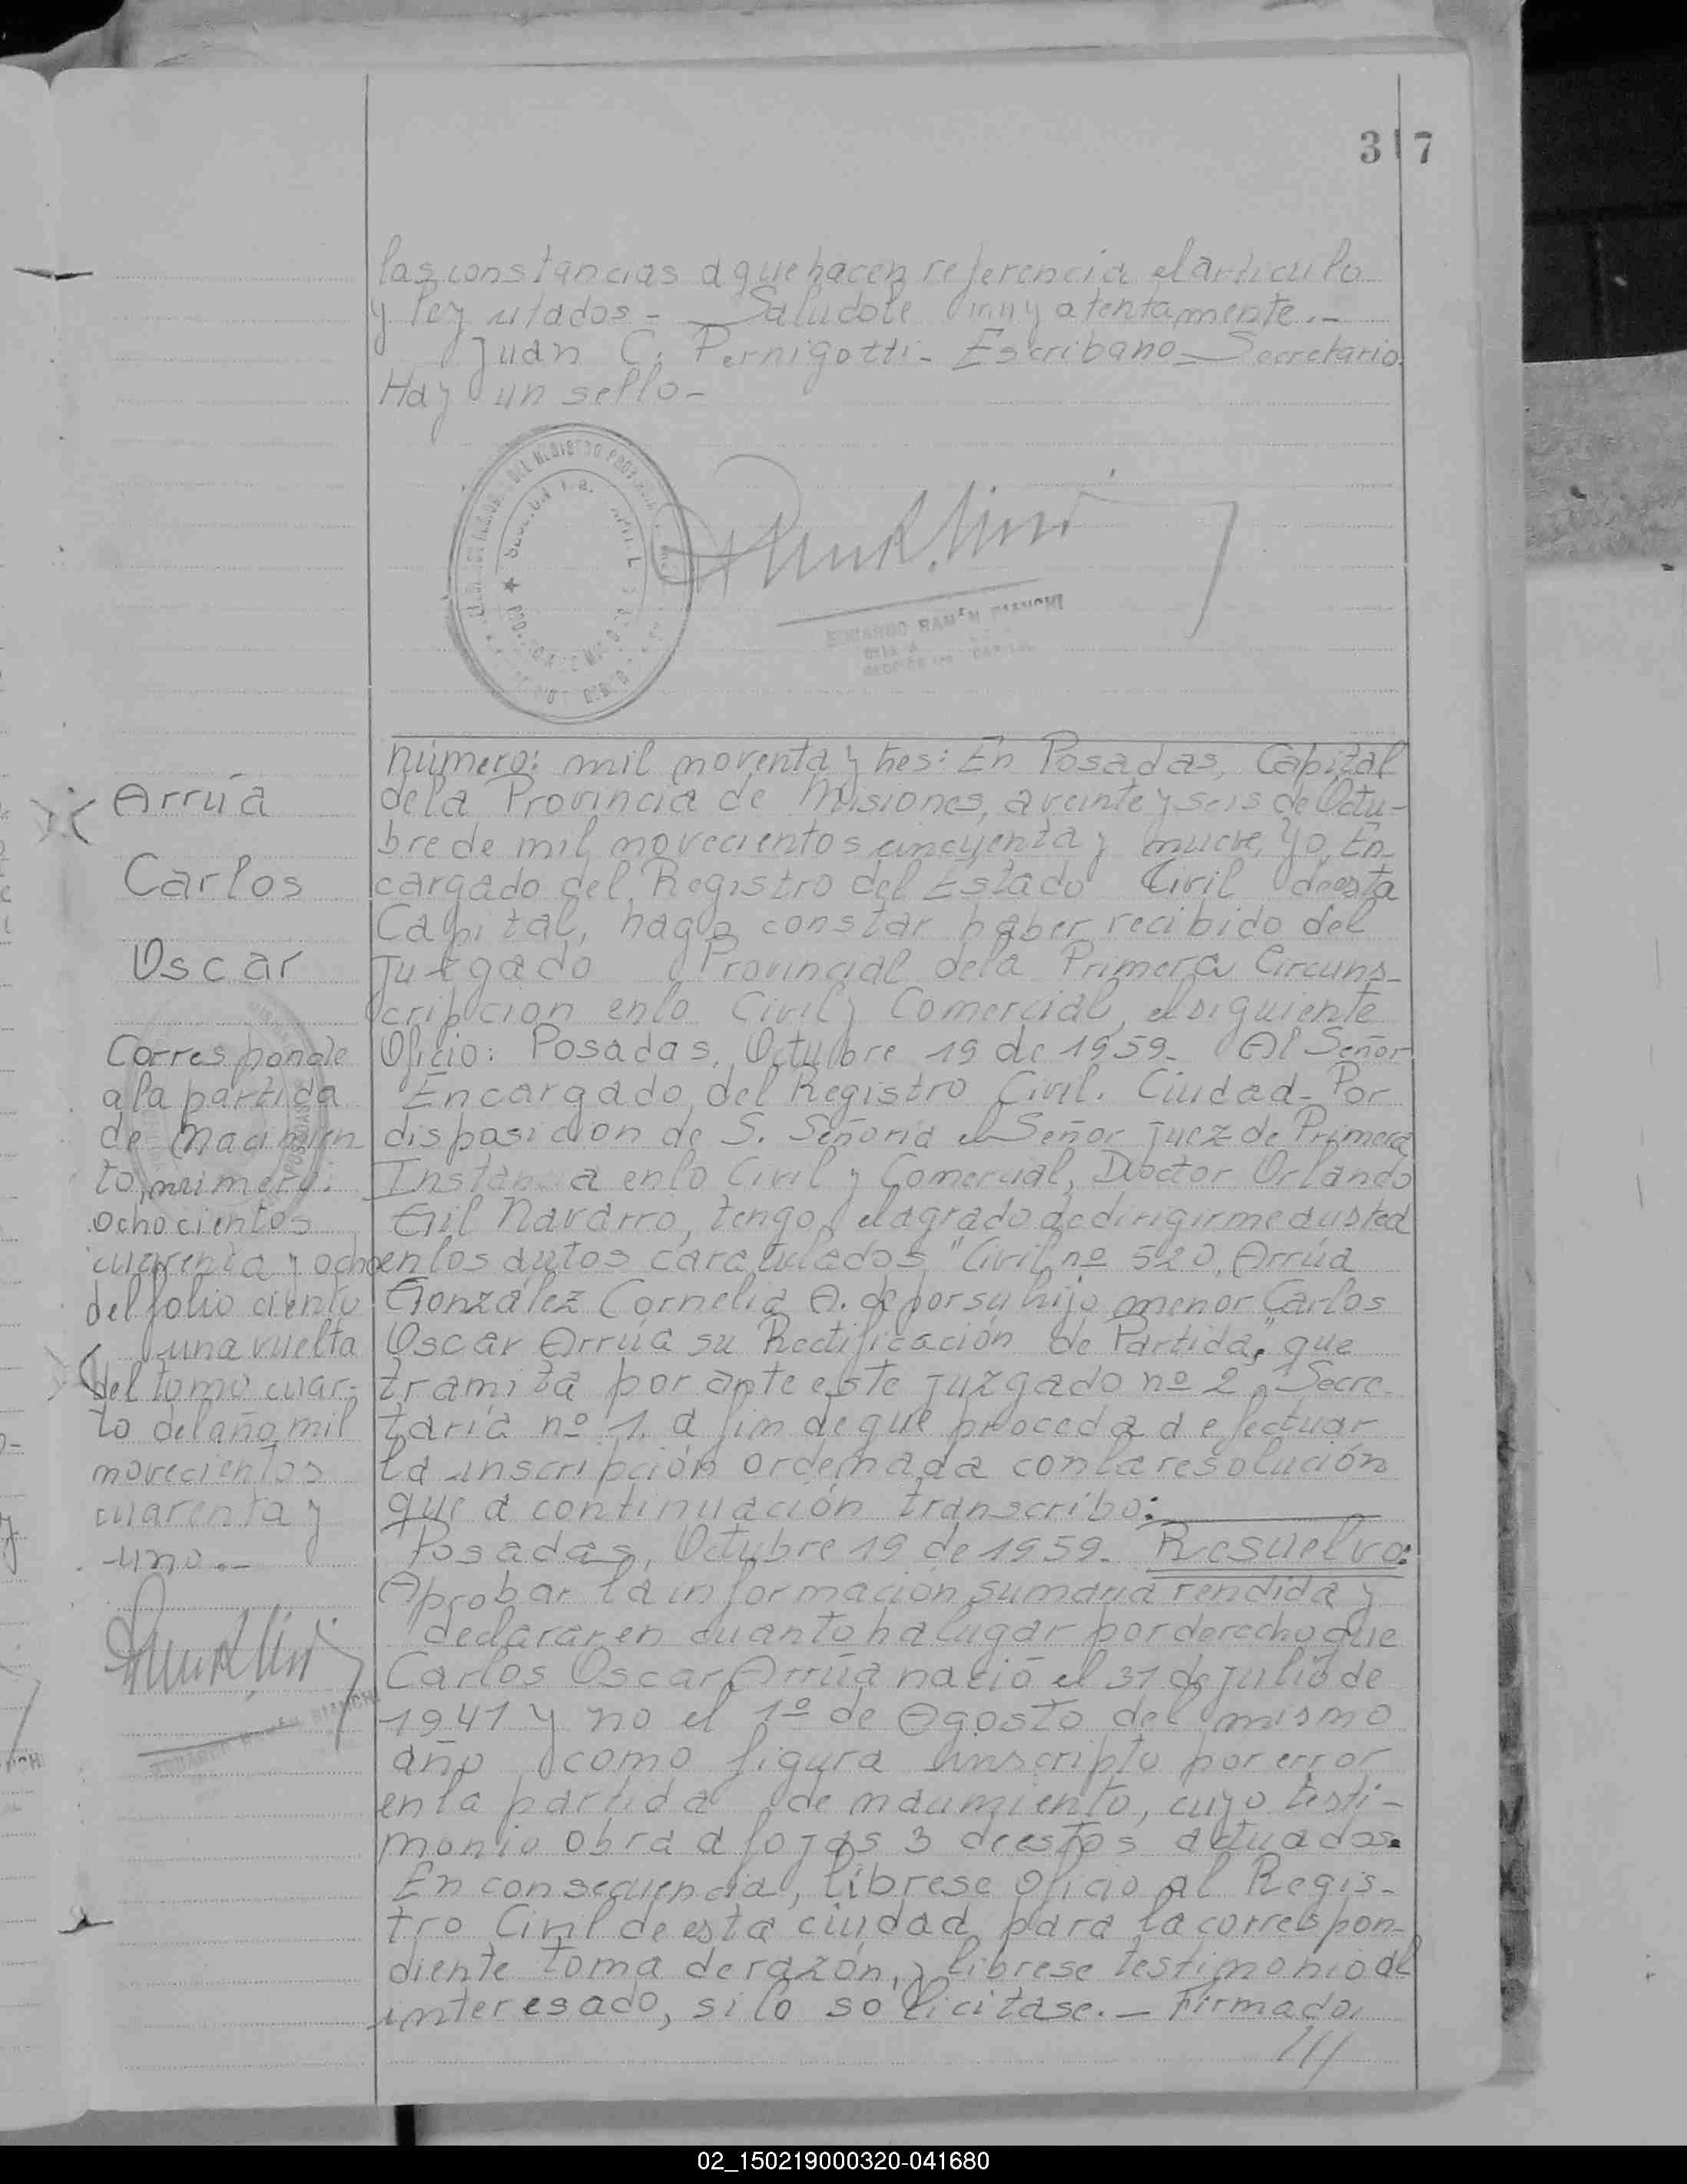 317
las constancias a que hacen referencia el artículo
y ley citados - Saludole muy atentamente.-
Juan C. Pernigotti - Escribano - Secretario.
Hay un sello -
DEL REGISTRO
Arrúa
Carlos
Oscar
Corresponde
a la partida
de nacimien
to, número:
ochocientos
cuarenta y ocho
del folio ciento
una vuelta
del tomo cuar-
to del año mil
novecientos
cuarenta y
uno.-
Número: mil noventa y tres: En Posadas, Capital
de la Provincia de Misiones, a veinte y seis de Octu-
bre de mil novecientos cincuenta y nueve, Yo, En-
cargado del Registro del Estado Civil de esta
Capital, hago constar haber recibido del
Juzgado Provincial de la Primera Circuns-
cripcion en lo Civil y Comercial, el siguiente
Oficio: Posadas, Octubre 19 de 1959 - Al Señor
Encargado del Registro Civil. Ciudad - Por
disposicion de S. Señoria el Señor Juez de Primera
Instancia en lo Civil y Comercial, Doctor Orlando
Gil Navarro, tengo el agrado de dirigirme a usted
en los autos caratulados "Civil nº 520, Arrúa
González Cornelia A. de por su hijo menor Carlos
Oscar Arrúa su Rectificación de Partida," que
tramita por ante este juzgado nº 2, Secre-
taría nº 1. a fin de que proceda a efectuar
la inscripción ordenada con la resolución
que a continuación transcribo:
Posadas, Octubre 19 de 1959 - Resuelvo:
Aprobar la información sumaria rendida y
declarar en cuanto ha lugar por derecho que
Carlos Oscar Arrúa nació el 31 de julio de
1941 y no el 1º de Agosto del mismo
año como figura inscripto por error
en la partida de nacimiento, cuyo testi-
monio obra a fojas 3 de estos actuados.
En consecuencia, librese oficio al Regis-
tro Civil de esta ciudad para la correspon-
diente toma de razón, y librese testimonio al
interesado, si lo solicitase. - Firmado.
///
02_150219000320-041680